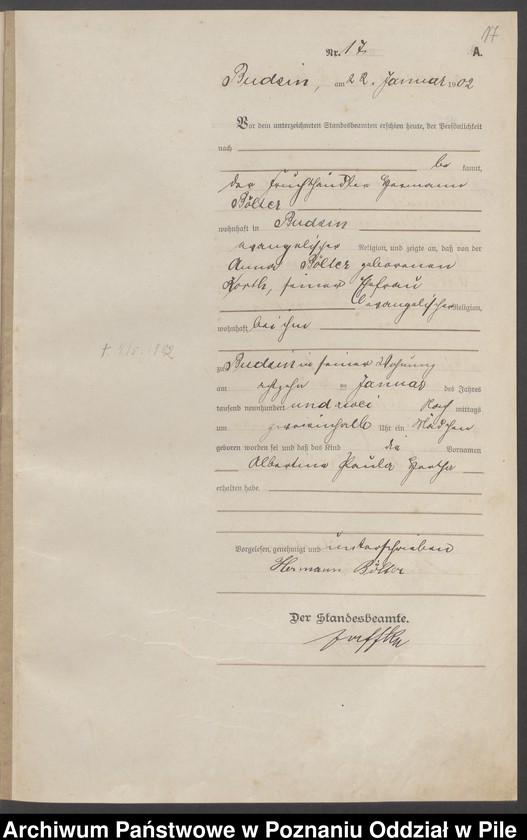 17
Nr. 17 A.
Budsin, am 22. Januar 1902
Vor dem unterzeichneten Standesbeamten erschien heute, der Persönlichkeit
nach
be kannt,
der Fruchthändler Hermann
Bölter
wohnhaft in Budsin
evangelischer Religion, und zeigte an, daß von der
Anna Bölter geborenen
Korth, seiner Ehefrau
evangelischer Religion,
wohnhaft bei ihm
† 1902
zu Budsin in seiner Wohnung
am im Januar des Jahres
tausend neunhundert und zwei Nach mittags
um Uhr ein Mädchen
geboren worden sei und daß das Kind die Vornamen
Albertine Paula Hertha
erhalten habe.
Vorgelesen, genehmigt und unterschrieben
Hermann Bölter
Der Standesbeamte.
Archiwum Państwowe w Poznaniu Oddział w Pile